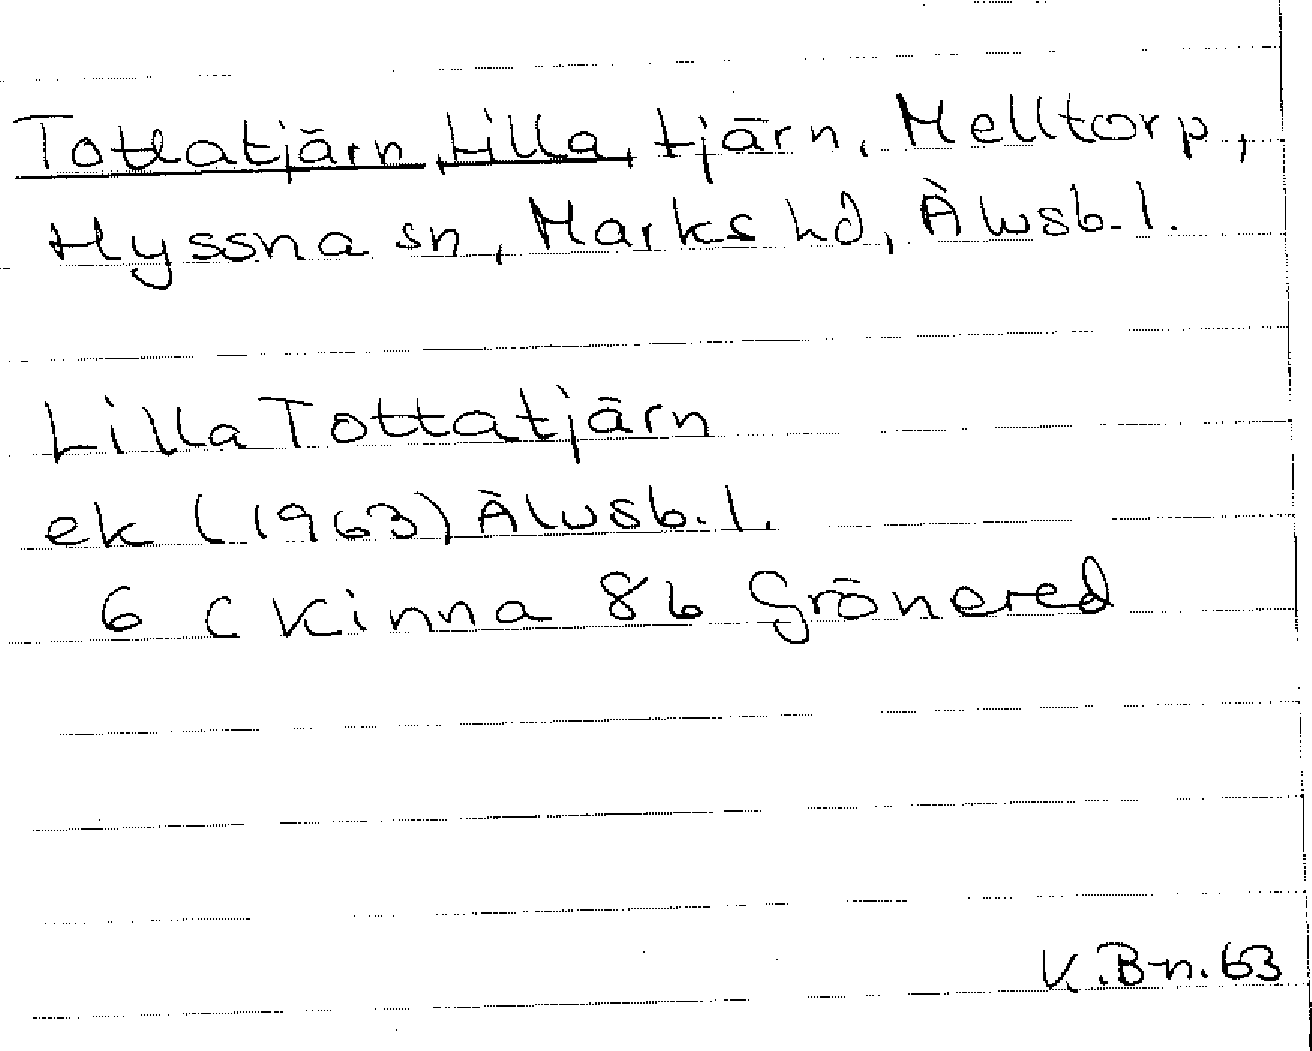 Tottatjärn, Lilla, tjärn, Melltorp,
Hyssna sn, Marks hd, Älvsb. l.
Lilla Tottatjärn
ek (1963) Älvsb. l.
6 C Kinna 8b Grönered
V. Bn. 63